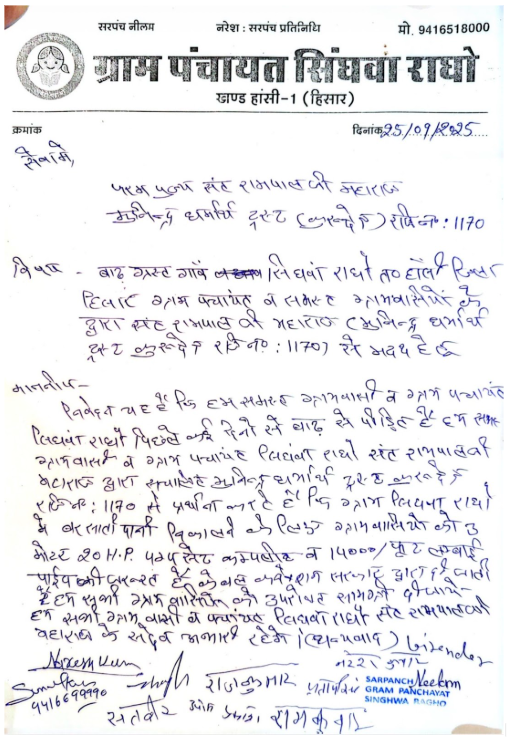 सरपंच नीलम नरेश : सरपंच प्रतिनिधि मो. 9416518000
ग्राम पंचायत सिंघवा राघो
खण्ड हांसी-1 (हिसार)
क्रमांक दिनांक 25/09/2025
सेवा में,
परम पूज्य संत रामपाल जी महाराज
मुनिन्द्र धर्मार्थ ट्रस्ट (कुरूक्षेत्र) रजि न० : 1170
विषय - बाढ़ ग्रस्त गांव सिंघवा राघो त० हाँसी जिला
हिसार ग्राम पंचायत व समस्त ग्रामवासियों के
द्वारा संत रामपाल जी महाराज (मुनिन्द्र धर्मार्थ
ट्रस्ट कुरूक्षेत्र रजि न० : 1170) से मदद हेतु
मानवीय-
निवेदन यह है कि हम समस्त ग्रामवासी व ग्राम पंचायत
सिंघवा राघो पिछले कई दिनों से बाढ़ से पीड़ित है हम समस्त
ग्रामवासी व ग्राम पंचायत सिंघवा राघो संत रामपाल जी
महाराज द्वारा मुनिन्द्र धर्मार्थ ट्रस्ट कुरूक्षेत्र
रजि न० : 1170 से प्रार्थना करते है कि ग्राम सिंघवा राघो
में बरसाती पानी निकालने के लिए ग्रामवासियों को 3
मोटर 20 H.P. पम्प सैट कम्पलीट व 14000/ फुट लम्बाई
पाईप की जरूरत है
हम सभी ग्रामवासी व पंचायत सिंघवा राघो संत रामपाल जी
महाराज के सदैव आभारी रहेगें। (धन्यवाद) Virender
Naresh Kumar नरेश कुमार
राजकुमार Neelam
9416699990
SARPANCH
GRAM PANCHAYAT
SINGHWA RAGHO
सतबीर ओम प्रकाश रामकुमार